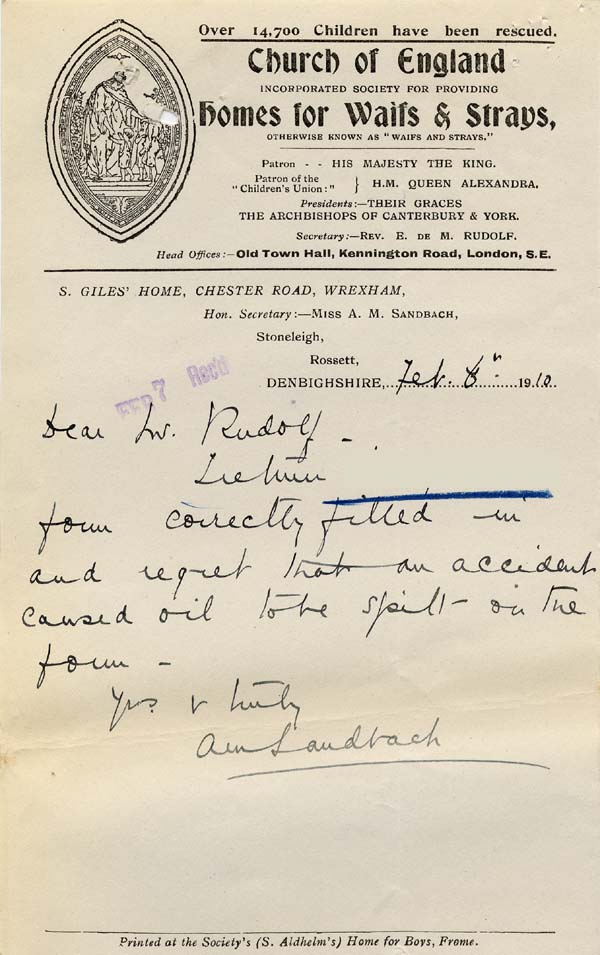 Over 14,700 Children have been rescued.
Church of England
INCORPORATED SOCIETY FOR PROVIDING
Homes for Waifs & Strays,
OTHERWISE KNOWN AS "WAIFS AND STRAYS."
Patron - - HIS MAJESTY THE KING.
Patron of the "Children's Union:" } H.M. QUEEN ALEXANDRA.
Presidents:—THEIR GRACES
THE ARCHBISHOPS OF CANTERBURY & YORK.
Secretary:—REV. E. DE M. RUDOLF.
Head Offices:—Old Town Hall, Kennington Road, London, S.E.
S. GILES' HOME, CHESTER ROAD, WREXHAM,
Hon. Secretary:—MISS A. M. SANDBACH,
Stoneleigh,
Rossett,
FEB 7 Rec'd
DENBIGHSHIRE, Feb. 6th 1910
Dear Mr. Rudolf -
I return
form correctly filled in
and regret that an accident
caused oil to be spilt on the
form -
Yrs v truly
AM Sandbach
Printed at the Society's (S. Aldhelm's) Home for Boys, Frome.